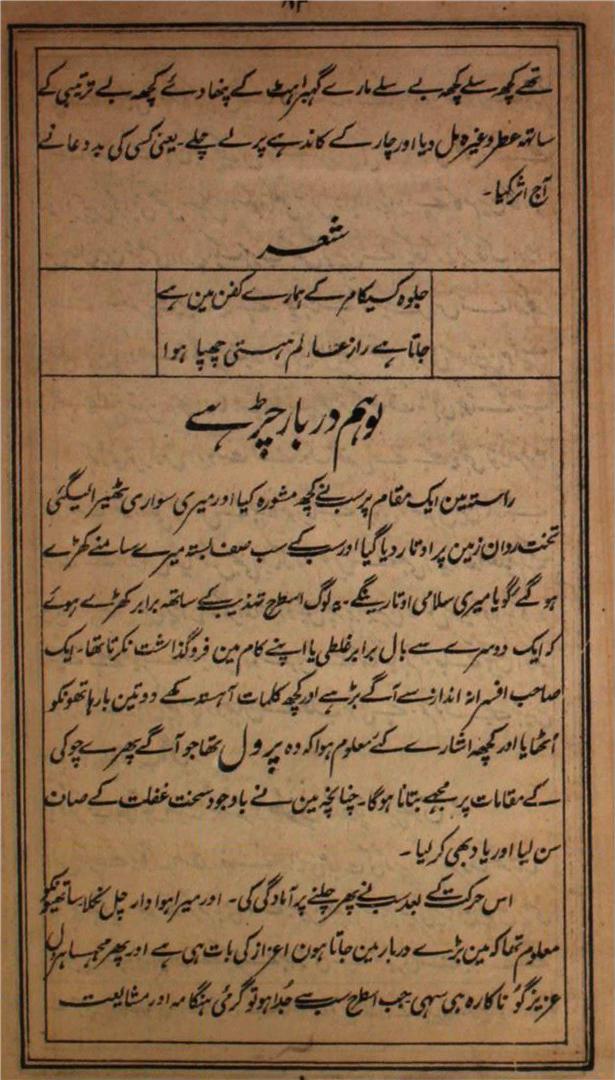 تھے کچھ سلے کچھ بے سلے مارے گھبراہٹ کے پنھادئے کچھ بے ترتیبی کے
ساتھ عطر وغیرہ مل دیا اور چار کے کاندھے پر لے چلے۔ یعنی کسی کی بد دعا نے
آج اثر کیا۔
شعر
جلوہ کسیکا م کے ہمارے کفن مین ہے
جاتا ہے راز عالم ہستی چھپا ہوا
توہم دربار چڑھے
راستہ مین ایک مقام پر سب نے کچھ مشورہ کیا اور میری سواری ٹھیرا لیگئی
تخت روان زمین پر اوتار دیا گیا اور سب کے سب صف بستہ میرے سامنے کھڑے
ہو گئے گویا میری سلامی اوتارینگے۔ یہ لوگ اسطرح تہذیب کے ساتھ برابر کھڑے ہوئے
کہ ایک دوسرے سے بال برابر غلطی یا اپنے کام مین فروگذاشت نکرتا تھا۔ ایک
صاحب افسرانہ انداز سے آگے بڑھے اور کچھ کلمات آہستہ کہکے دو تین بار ہاتھونکو
اُٹھایا اور کچھ اشارے کئے معلوم ہوا کہ وہ پرول تھا جو آگے پھرے چوکی
کے مقامات پر مجھے بتانا ہوگا۔ چنانچہ مین نے باوجود سخت غفلت کے صاف
سن لیا اور یاد بھی کر لیا۔
اس حرکت کے بعد سب نے پھر چلنے پر آمادگی کی۔ اور میرا ہوادار چل نکلا ساتھیونکو
معلوم تھا کہ مین بڑے دربار مین جاتا ہون اعزاز کی بات ہی ہے اور پھر مجھسا ہردل
عزیز گو ناکارہ ہی سہی جب اسطرح سب سے جُدا ہو تو گرمئ ہنگامہ اور مشایعت